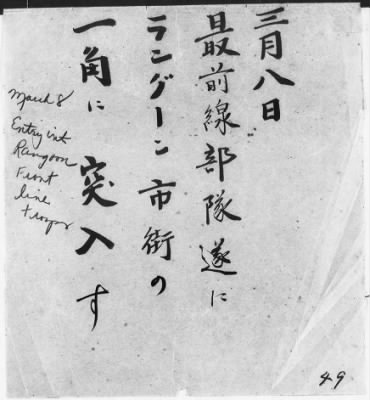 三月八日
最前線部隊遂に
ラングーン市街の
一角に突入す
March 8
Entry into
Rangoon
Front
line
troops
49